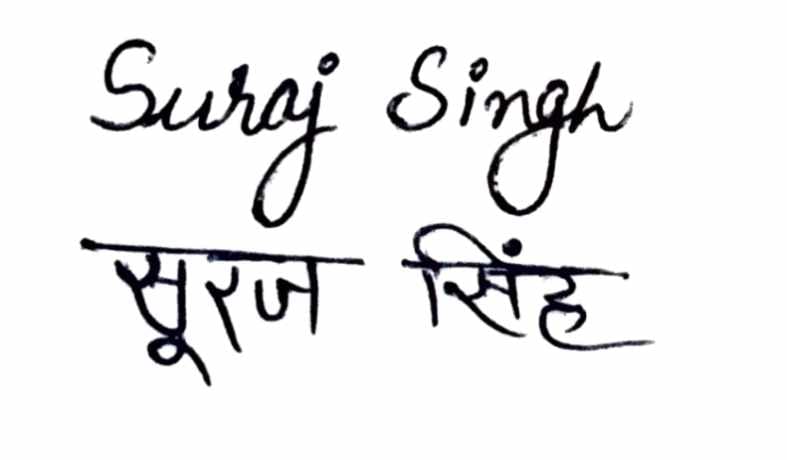 Suraj Singh
सूरज सिंह